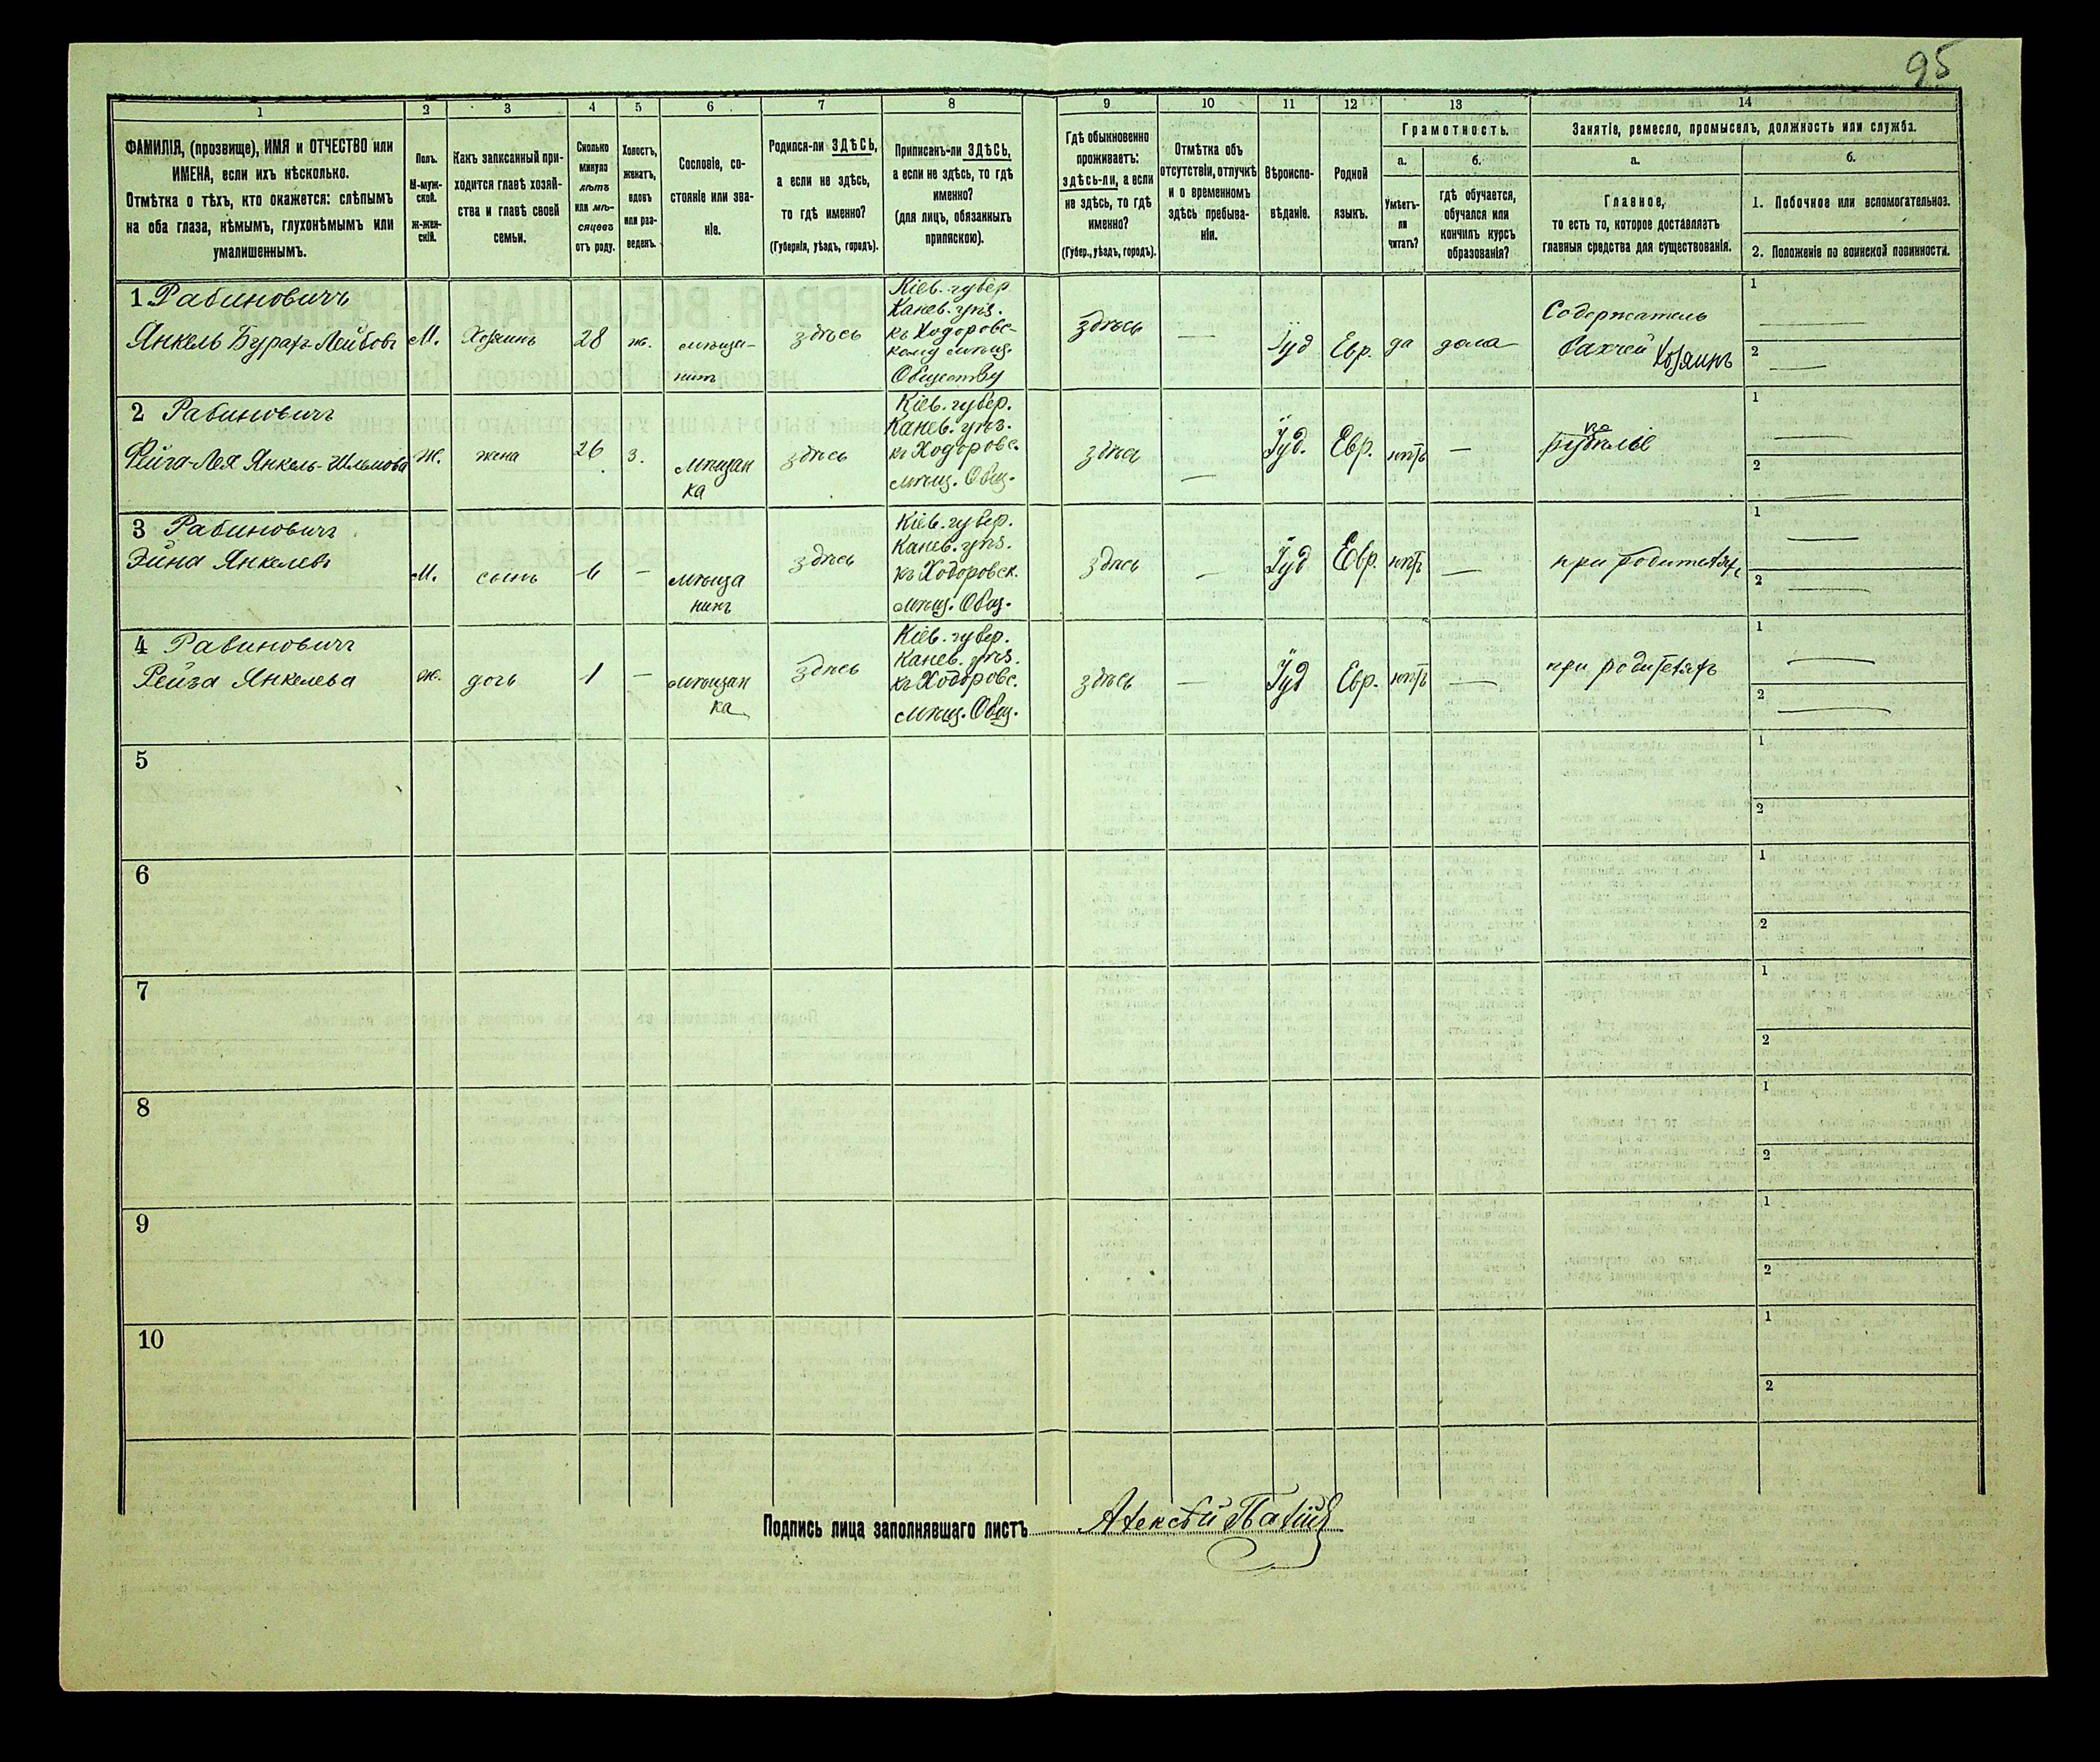 95
1 2 3 4 5 6 7 8 9 10 11 12 13 14
ФАМИЛІЯ, (прозвище), ИМЯ и ОТЧЕСТВО или
ИМЕНА, если ихъ нѣсколько.
Отмѣтка о тѣхъ, кто окажется: слѣпымъ
на оба глаза, нѣмымъ, глухонѣмымъ или
умалишеннымъ.
Полъ.
М-муж-
ской.
ж-жен-
скій.
Какъ записанный при-
ходится главѣ хозяй-
ства и главѣ своей
семьи.
Сколько
минуло
лѣтъ
или мѣ-
сяцевъ
отъ роду.
Холостъ,
женатъ,
вдовъ
или раз-
веденъ.
Сословіе, со-
стояніе или зва-
ніе.
Родился-ли ЗДѢСЬ,
а если не здѣсь,
то гдѣ именно?
(Губернія, уѣздъ, городъ).
Приписанъ-ли ЗДѢСЬ,
а если не здѣсь, то гдѣ
именно?
(для лицъ, обязанныхъ
припискою).
Гдѣ обыкновенно
проживаетъ:
здѣсь-ли, а если
не здѣсь, то гдѣ
именно?
(Губер., уѣздъ, городъ).
Отмѣтка объ
отсутствіи, отлучкѣ
и о временномъ
здѣсь пребыва-
ніи.
Вѣроиспо-
вѣданіе.
Родной
языкъ.
Грамотность.
а.
Умѣетъ-
ли
читать?
б.
гдѣ обучается,
обучался или
кончилъ курсъ
образованія?
Занятіе, ремесло, промыселъ, должность или служба.
а.
Главное,
то есть то, которое доставляетъ
главныя средства для существованія.
б.
1. Побочное или вспомогательное.
2. Положеніе по воинской повинности.
1 Рабиновичъ
Янкель Бурах-Лейбовъ
М.
Хозяинъ
28
ж.
мѣща-
нинъ
здѣсь
Кіев. губер
Канев. уѣз.
къ Ходоровс-
кому мѣщ.
Обществу
здѣсь
—
Іуд
Евр.
да
дома
Содержатель
бахчей Хозяинъ
1 —
2 —
2 Рабиновичъ
Фейга-Лея Янкель-Шльомова
Ж.
жена
26
з.
мѣщан
ка
здѣсь
Кіев. губер.
Канев. уѣз.
къ Ходоровс.
мѣщ. Общ.
здѣсь
—
Іуд.
Евр.
нѣтъ
—
1 —
2 —
3 Рабиновичъ
Янкелевъ
М.
сынъ
6
—
мѣща
нинъ
здѣсь
Кіев. губер.
Канев. уѣз.
къ Ходоровск.
мѣщ. Общ.
здѣсь
—
Іуд
Евр.
нѣтъ
—
при родителяхъ
1 —
2 —
4 Рабиновичъ
Рейза Янкелева
ж.
дочь
1
—
мѣщан
ка
здѣсь
Кіев. губер.
Канев. уѣз.
къ Ходоровс.
мѣщ. Общ.
здѣсь
—
Іуд
Евр.
нѣтъ
—
при родителяхъ
1 —
2 —
5
1
2
6
1
2
7
1
2
8
1
2
9
1
2
10
1
2
Подпись лица заполнявшаго листъ Алексѣй